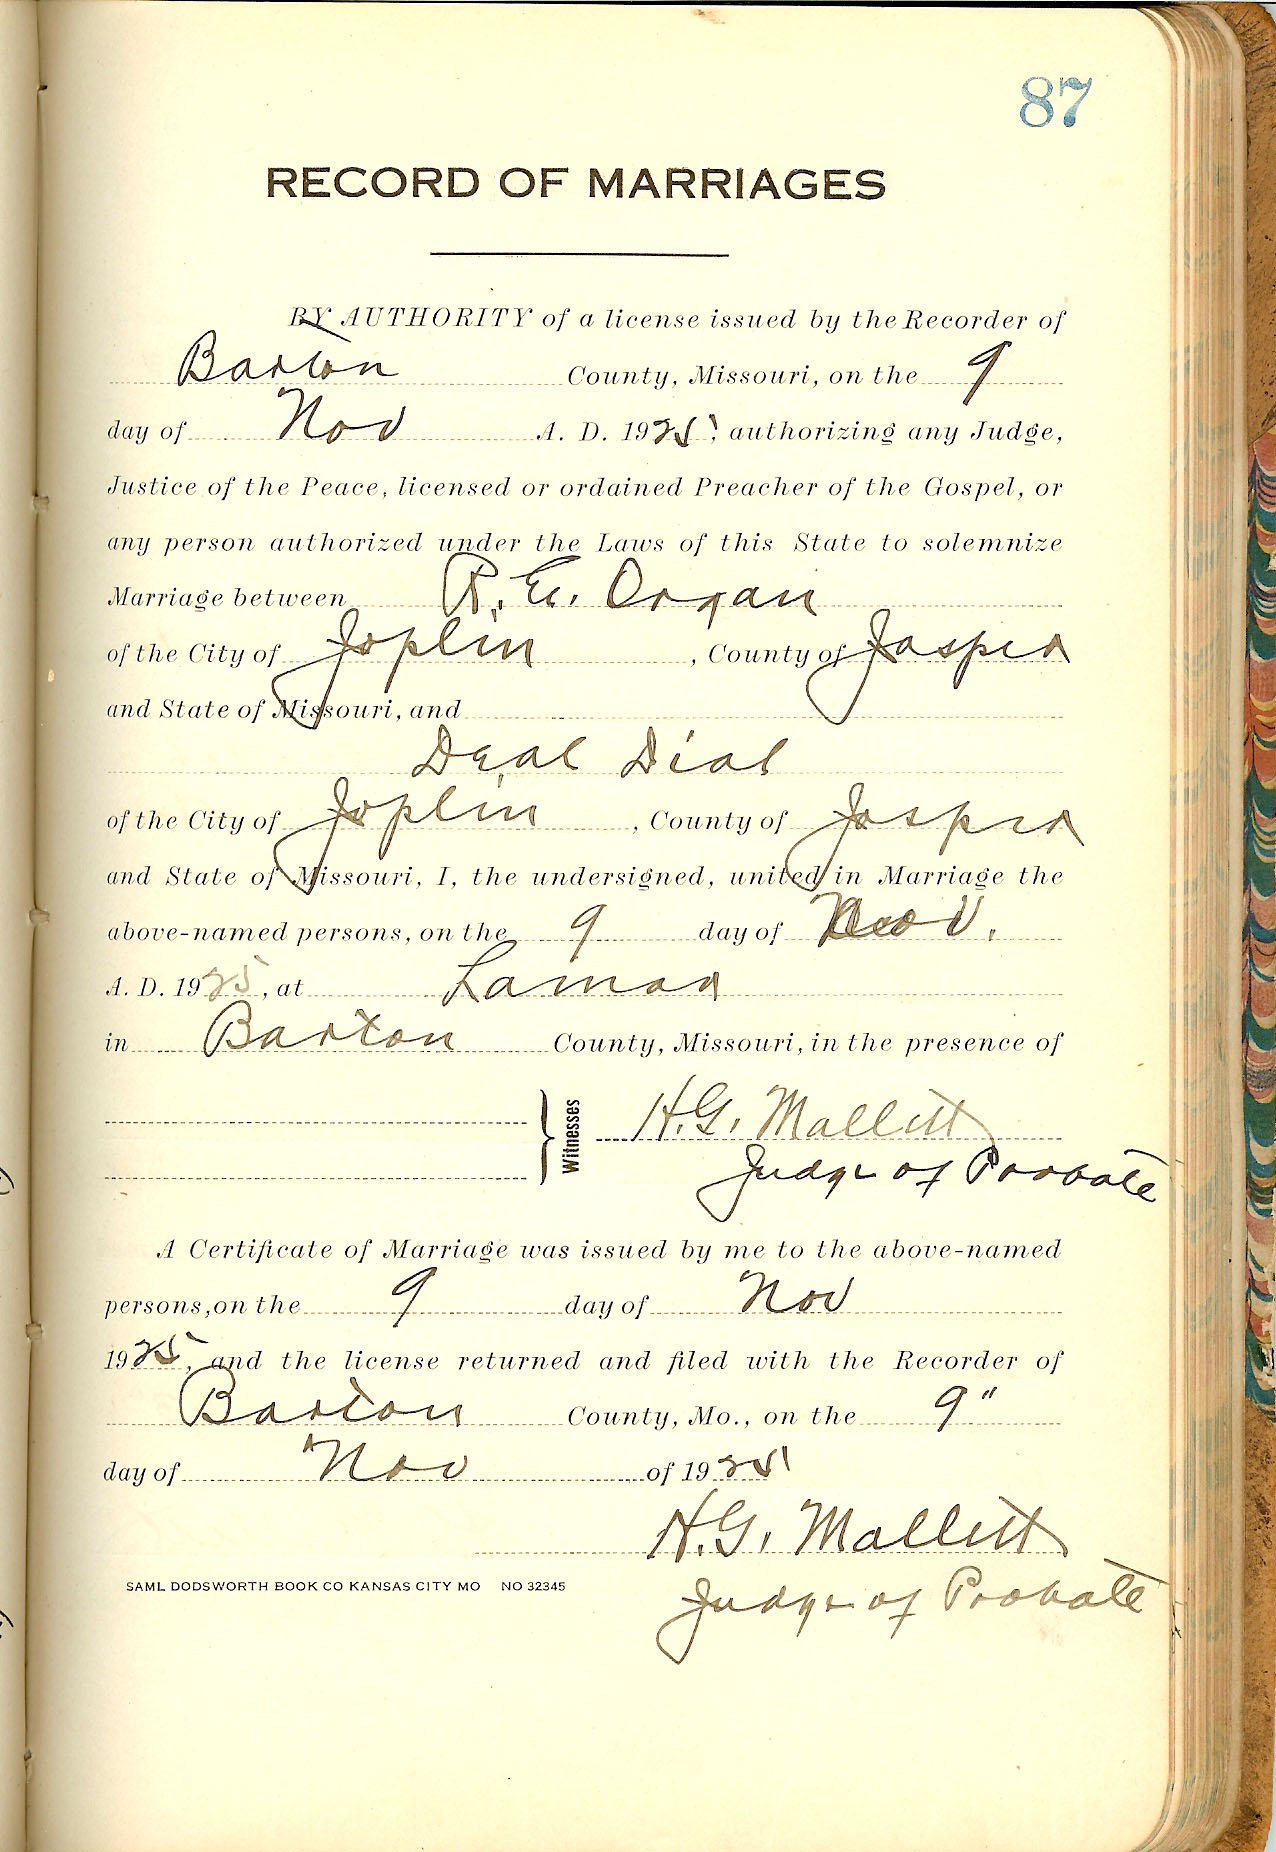 87
RECORD OF MARRIAGES
BY AUTHORITY of a license issued by the Recorder of
Barton County, Missouri, on the 9
day of Nov A. D. 1925, authorizing any Judge,
Justice of the Peace, licensed or ordained Preacher of the Gospel, or
any person authorized under the Laws of this State to solemnize
Marriage between R. E. Organ
of the City of Joplin, County of Jasper
and State of Missouri, and
Deal Dial
of the City of Joplin, County of Jasper
and State of Missouri, I, the undersigned, united in Marriage the
above-named persons, on the 9 day of Nov.
A. D. 1925, at Lamar
in Barton County, Missouri, in the presence of
Witnesses H.G. Mallett
Judge of Probate
A Certificate of Marriage was issued by me to the above-named
persons, on the 9 day of Nov
1925, and the license returned and filed with the Recorder of
Barton County, Mo., on the 9"
day of Nov of 1925
H.G. Mallett
SAML DODSWORTH BOOK CO KANSAS CITY MO NO 32345
Judge of Probate